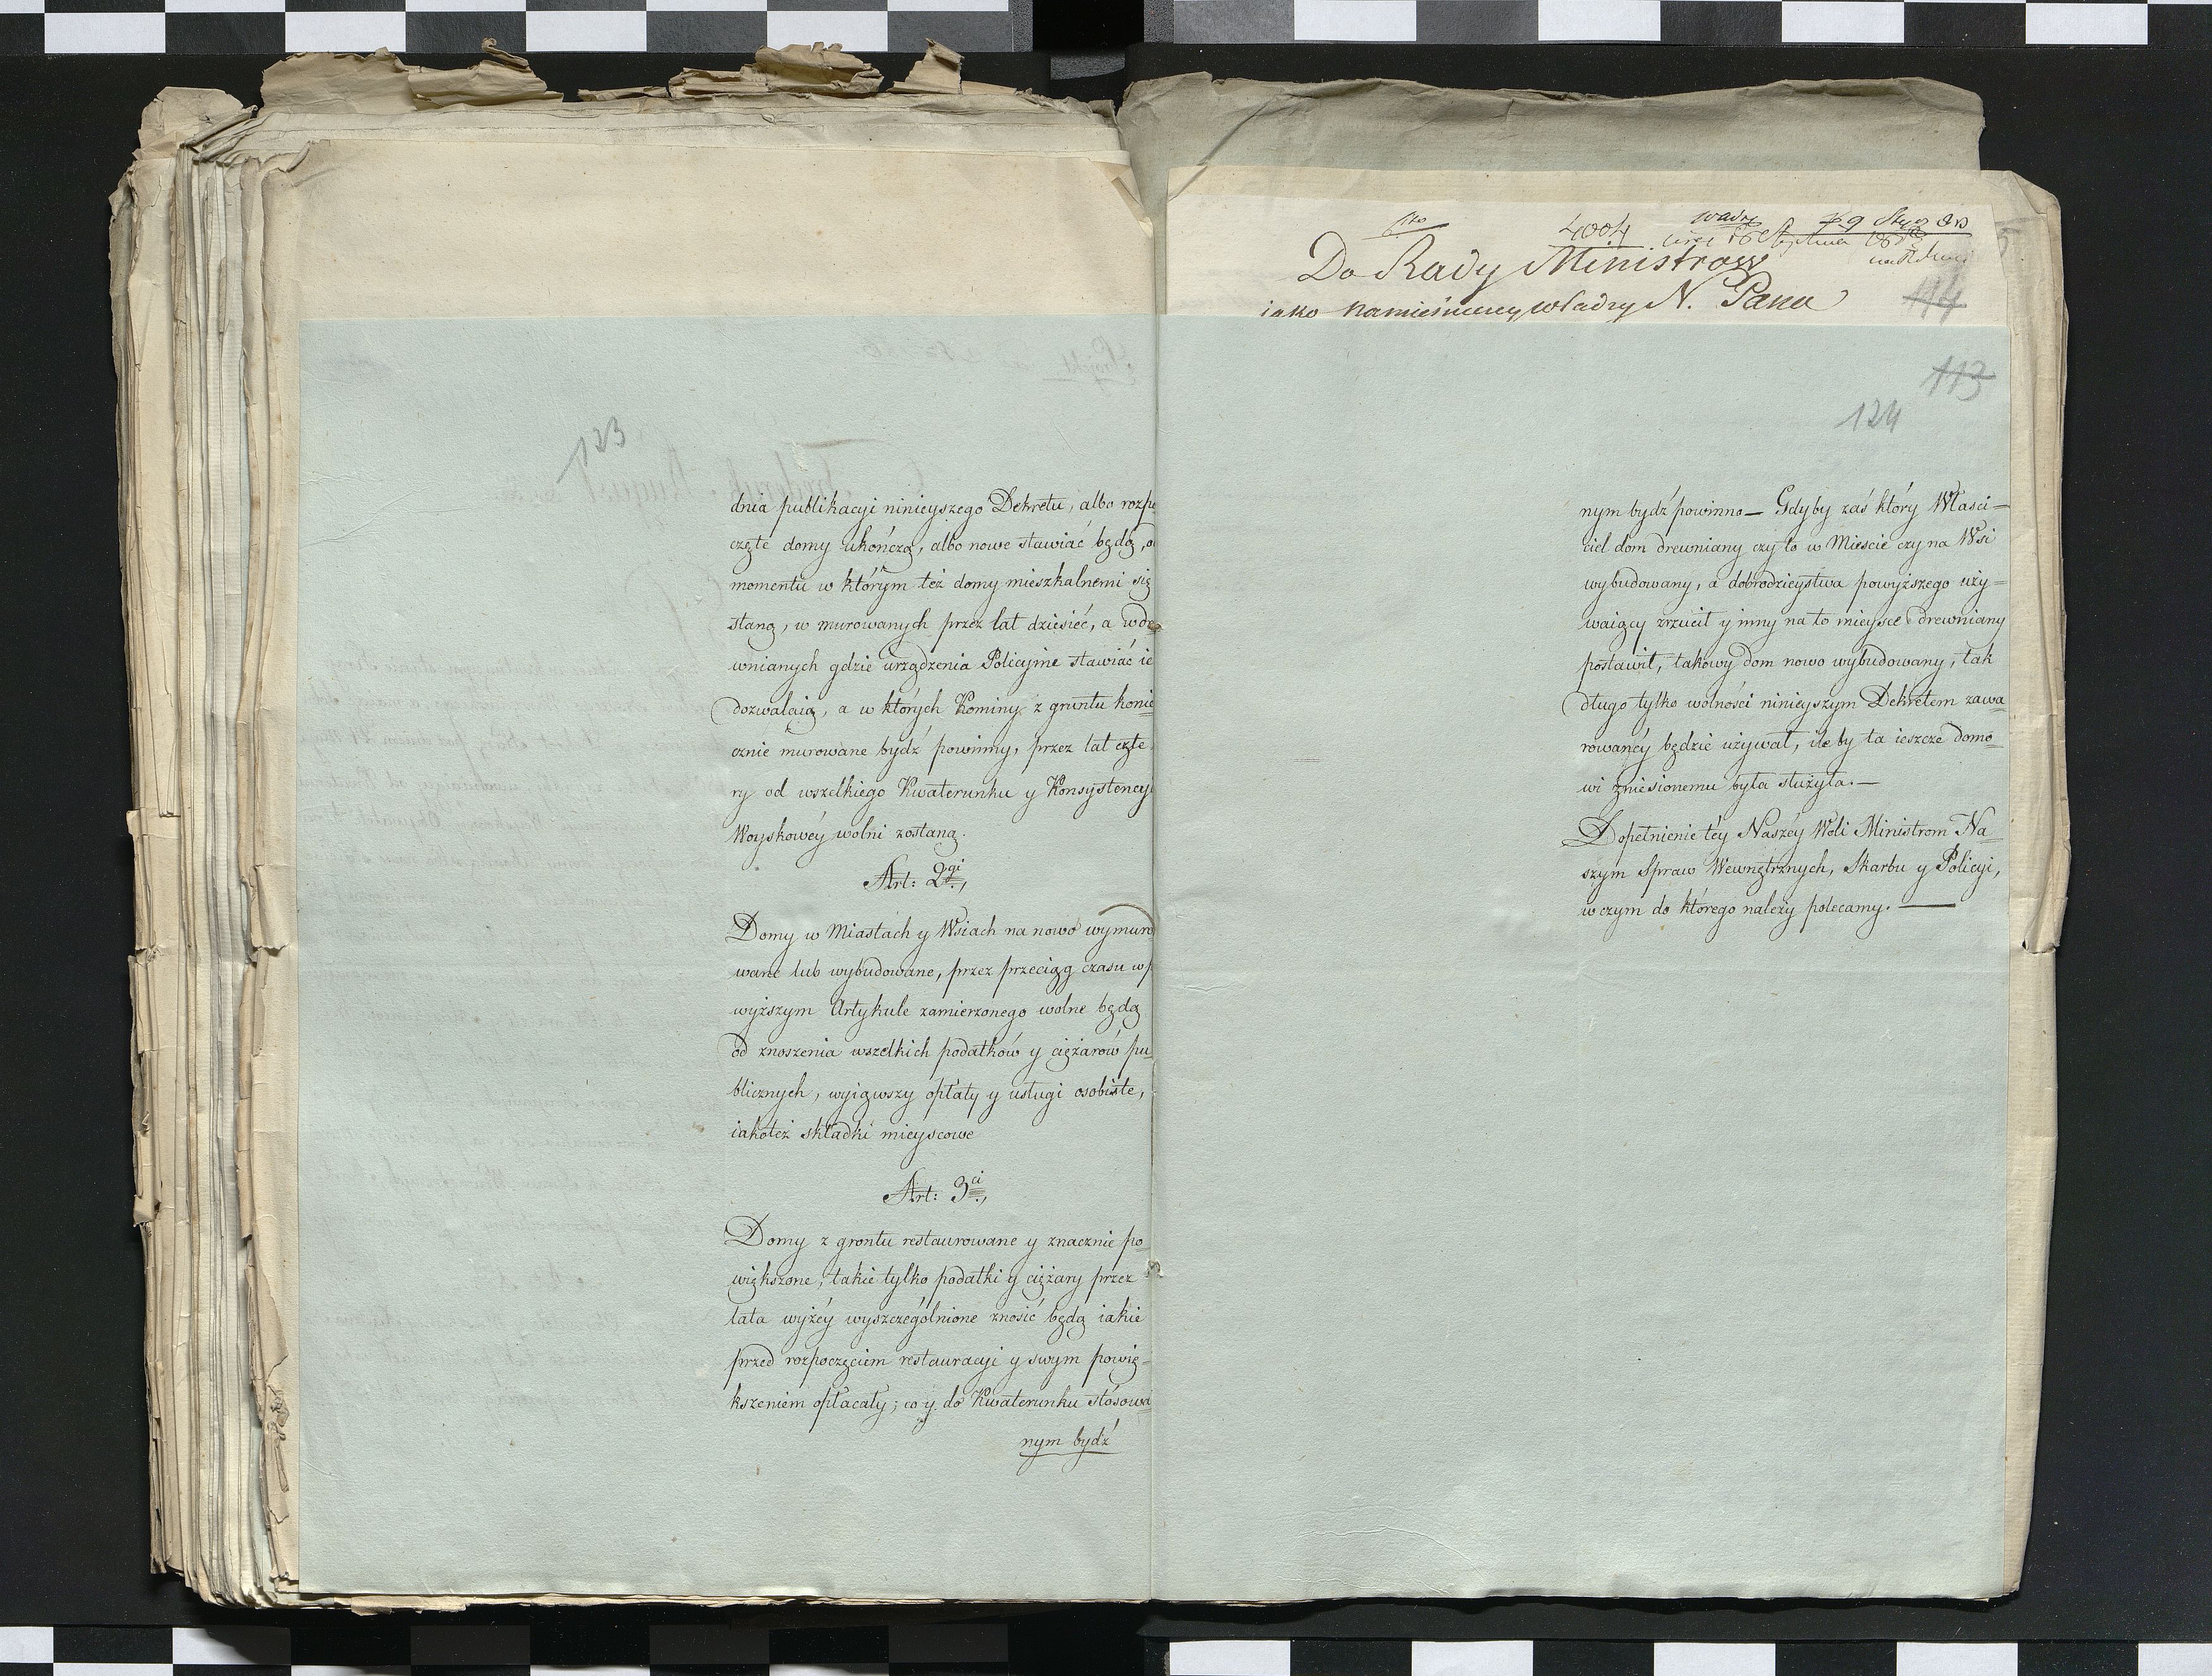 123
dnia publikacyi ninieyszego Dekretu, albo rozpo
częte domy ukończą, albo nowe stawiać będą, o
momentu w którym też domy mieszkalnemi się
staną, w murowanych przez lat dziesięć, a w dre
wnianych gdzie urządzenia Policyjne stawiać ie
dozwalaią, a w których Kominy z gruntu konie
cznie murowane bydź powinny, przez lat czte
ry od wszelkiego Kwaterunku y Konsystencyi
Woyskowéy wolni zostaną.
Art: 2gi,
Domy w Miastach y Wsiach na nowo wymuro
wane lub wybudowane, przez przeciąg czasu w p
wyższym Artykule zamierzonego wolne będą
od znoszenia wszelkich podatków y ciężarów pu
blicznych, wyiąwszy opłaty y usługi osobiste,
iakotéż składki mieyscowe
Art: 3ci,
Domy z grontu restaurowane y znacznie po
większone, takie tylko podatki y ciężary przez
lata wyżéy wyszczególnione znosić będą iakie
przed rozpoczęciem restauracyi y swym powię=
kszeniem opłacały; co y do Kwaterunku stosowa
nym bydź
4004
Do Rady Ministrow
iako namiestniczey władzy N. Pana
114
113
124
nym bydź powinno — Gdyby zaś który Własci=
ciel dom drewniany czy to w Miescie czy na Wsi
wybudowany, a dobrodzieystwa powyższego uży=
waiący zrzucił y inny na to mieysce drewniany
postawił, takowy dom nowo wybudowany, tak
długo tylko wolności ninieyszym Dekretem zawa=
rowanéy będzie używał, ile by ta ieszcze domo=
wi zniesionemu była służyła. —
Dopełnienie téy Naszéy Woli Ministrom Na=
szym Spraw Wewnętrznych, Skarbu y Policyi,
w czym do którego należy polecamy. —